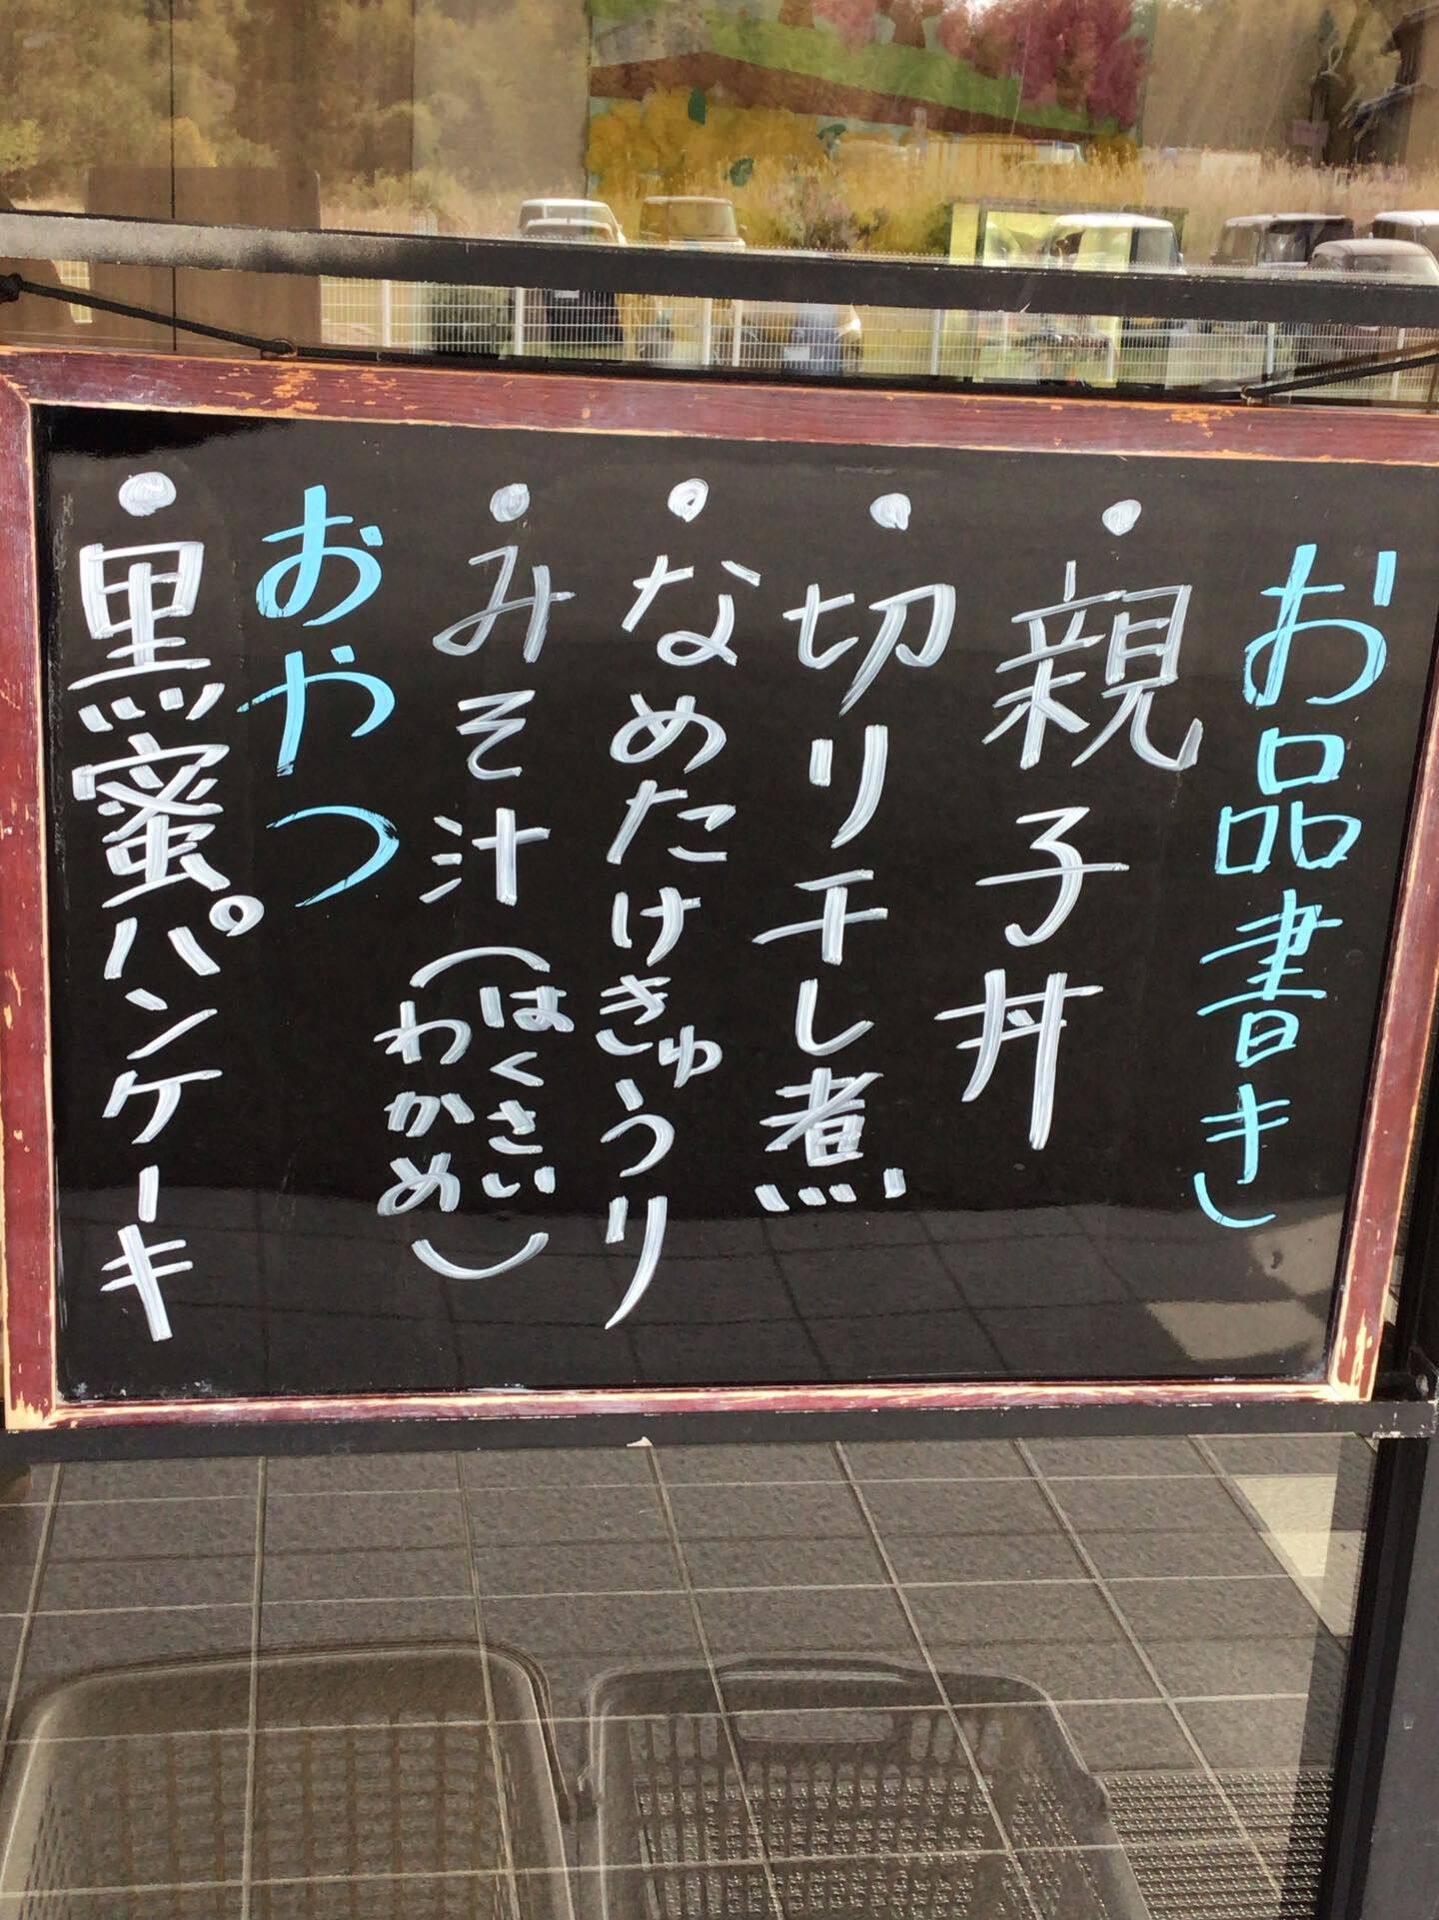 お品書き
・親子丼
・切り干し煮
・なめたけきゅうり
・みそ汁(はくさい
わかめ)
おやつ
・黒蜜パンケーキ